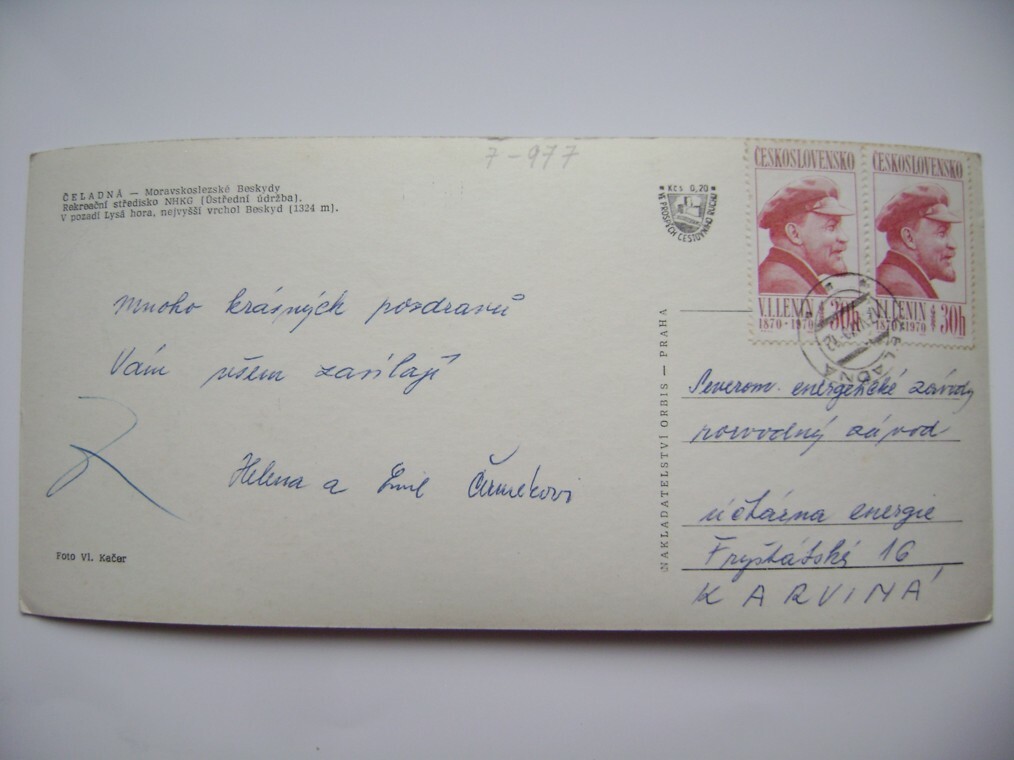 7-977
ČELADNÁ — Moravskoslezské Beskydy
Rekreační středisko NHKG (Ústřední údržba).
V pozadí Lysá hora, nejvyšší vrchol Beskyd (1324 m).
Kčs 0,20
VE PROSPĚCH CESTOVNÍHO RUCHU
ČESKOSLOVENSKO
V.I.LENIN
1870-1970
30h
ČESKOSLOVENSKO
V.I.LENIN
1870-1970
30h
ČELADNÁ
mnoho krásných pozdravů
Vám všem zasílají
Helena a Emil
Foto Vl. Kačer
NAKLADATELSTVÍ ORBIS — PRAHA
Severom. energetické závody
rozvodný závod
účtárna energie
Fryštátská 16
KARVINÁ